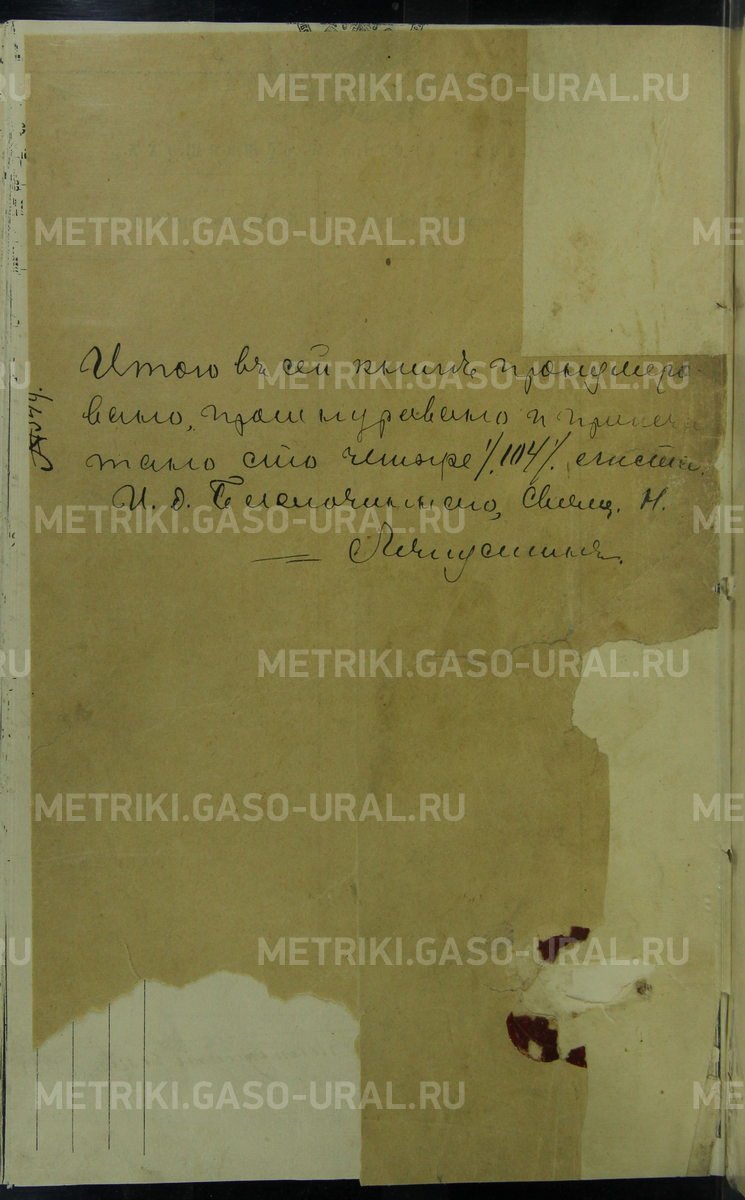 METRIKI.GASO-URAL.RU
METRIKI.GASO-URAL.RU
Итого въ сей книгѣ пронумеро-
вано, прошнуровано и припеча
тано сто четыре /104/ листа.
И. д. Благочиннаго, Свящ. Н.
METRIKI.GASO-URAL.RU
METRIKI.GASO-URAL.RU
METRIKI.GASO-URAL.RU
METRIKI.GASO-URAL.RU
METRIKI.GASO-URAL.RU
METRIKI.GASO-URAL.RU